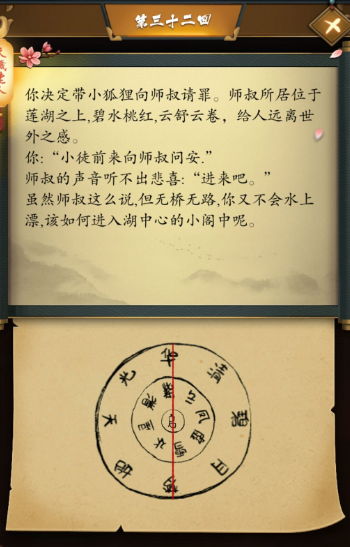 第三十二回
你决定带小狐狸向师叔请罪。师叔所居位于
莲湖之上,碧水桃红,云舒云卷，给人远离世
外之感。
你:“小徒前来向师叔问安.”
师叔的声音听不出悲喜:“进来吧。”
虽然师叔这么说,但无桥无路,你又不会水上
漂,该如何进入湖中心的小阁中呢。
华
清
碧
天
光